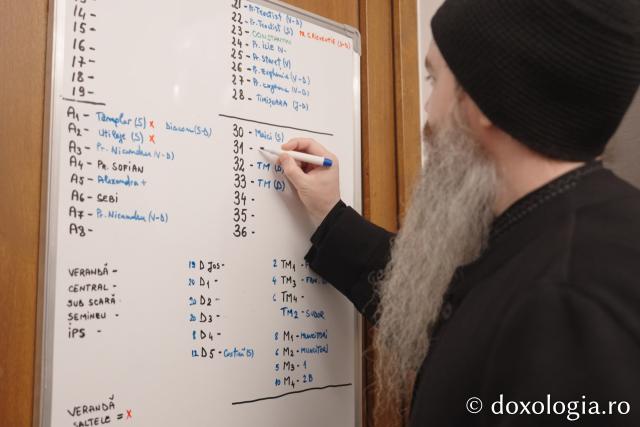 14 -
15 -
16 -
17 -
18 -
19 -
A1 - Tâmplar (S) x Diaconu (S-D)
A2 - Utilaje (S) x
A3 - Pr. Nicandru (V-D)
A4 - Pr. SOFIAN
A5 - Alexandra +
A6 - SEBI
A7 - Pr. Nicandru (V-D)
A8 -
21 - P. Teoctist (V-D)
22 - P. Teoctist (S)
23 - CONSTANTIN
24 - Pr. Ilie V-
25 - Pr. Stareț (V)
26 - Pr. Eughenie (V-D)
27 - Pr. Eughenie (V-D)
28 - TIMIȘOARA (J-D)
30 - Maici (S)
31 -
32 - TM (D)
33 - TM (D)
34 -
35 -
36 -
VERANDĂ -
CENTRAL -
SUB SCARĂ -
ȘEMINEU -
IPS -
19 D Jos -
20 D1 -
20 D2 -
20 D3 -
8 D4 -
12 D5 - Costică (S)
2 TM1 -
4 TM3 -
6 TM4 -
TM2 - SUDOR
8 M1 - MUNCITORI
6 M2 - MUNCITORI
5 M3 - 1
10 M4 - 2B
VERANDĂ
SALTELE = x
© doxologia.ro